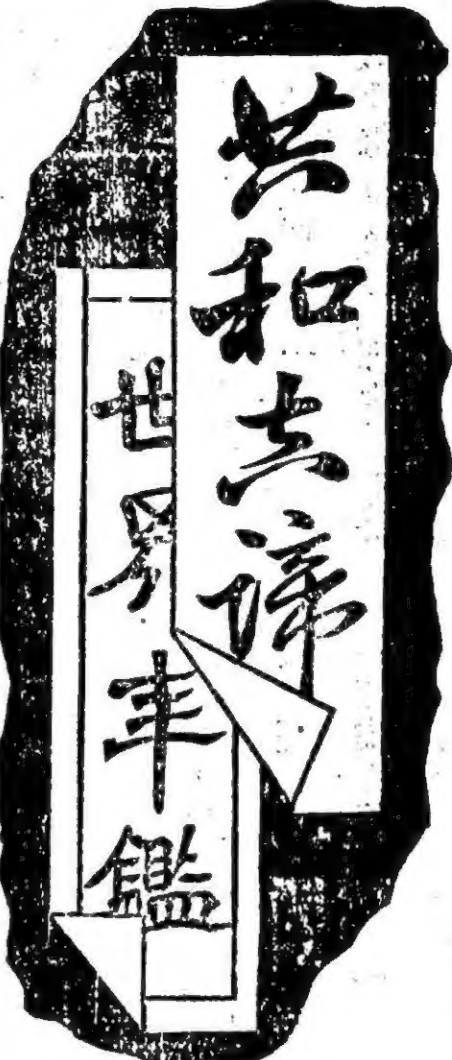 共和真諦
世界年鑑